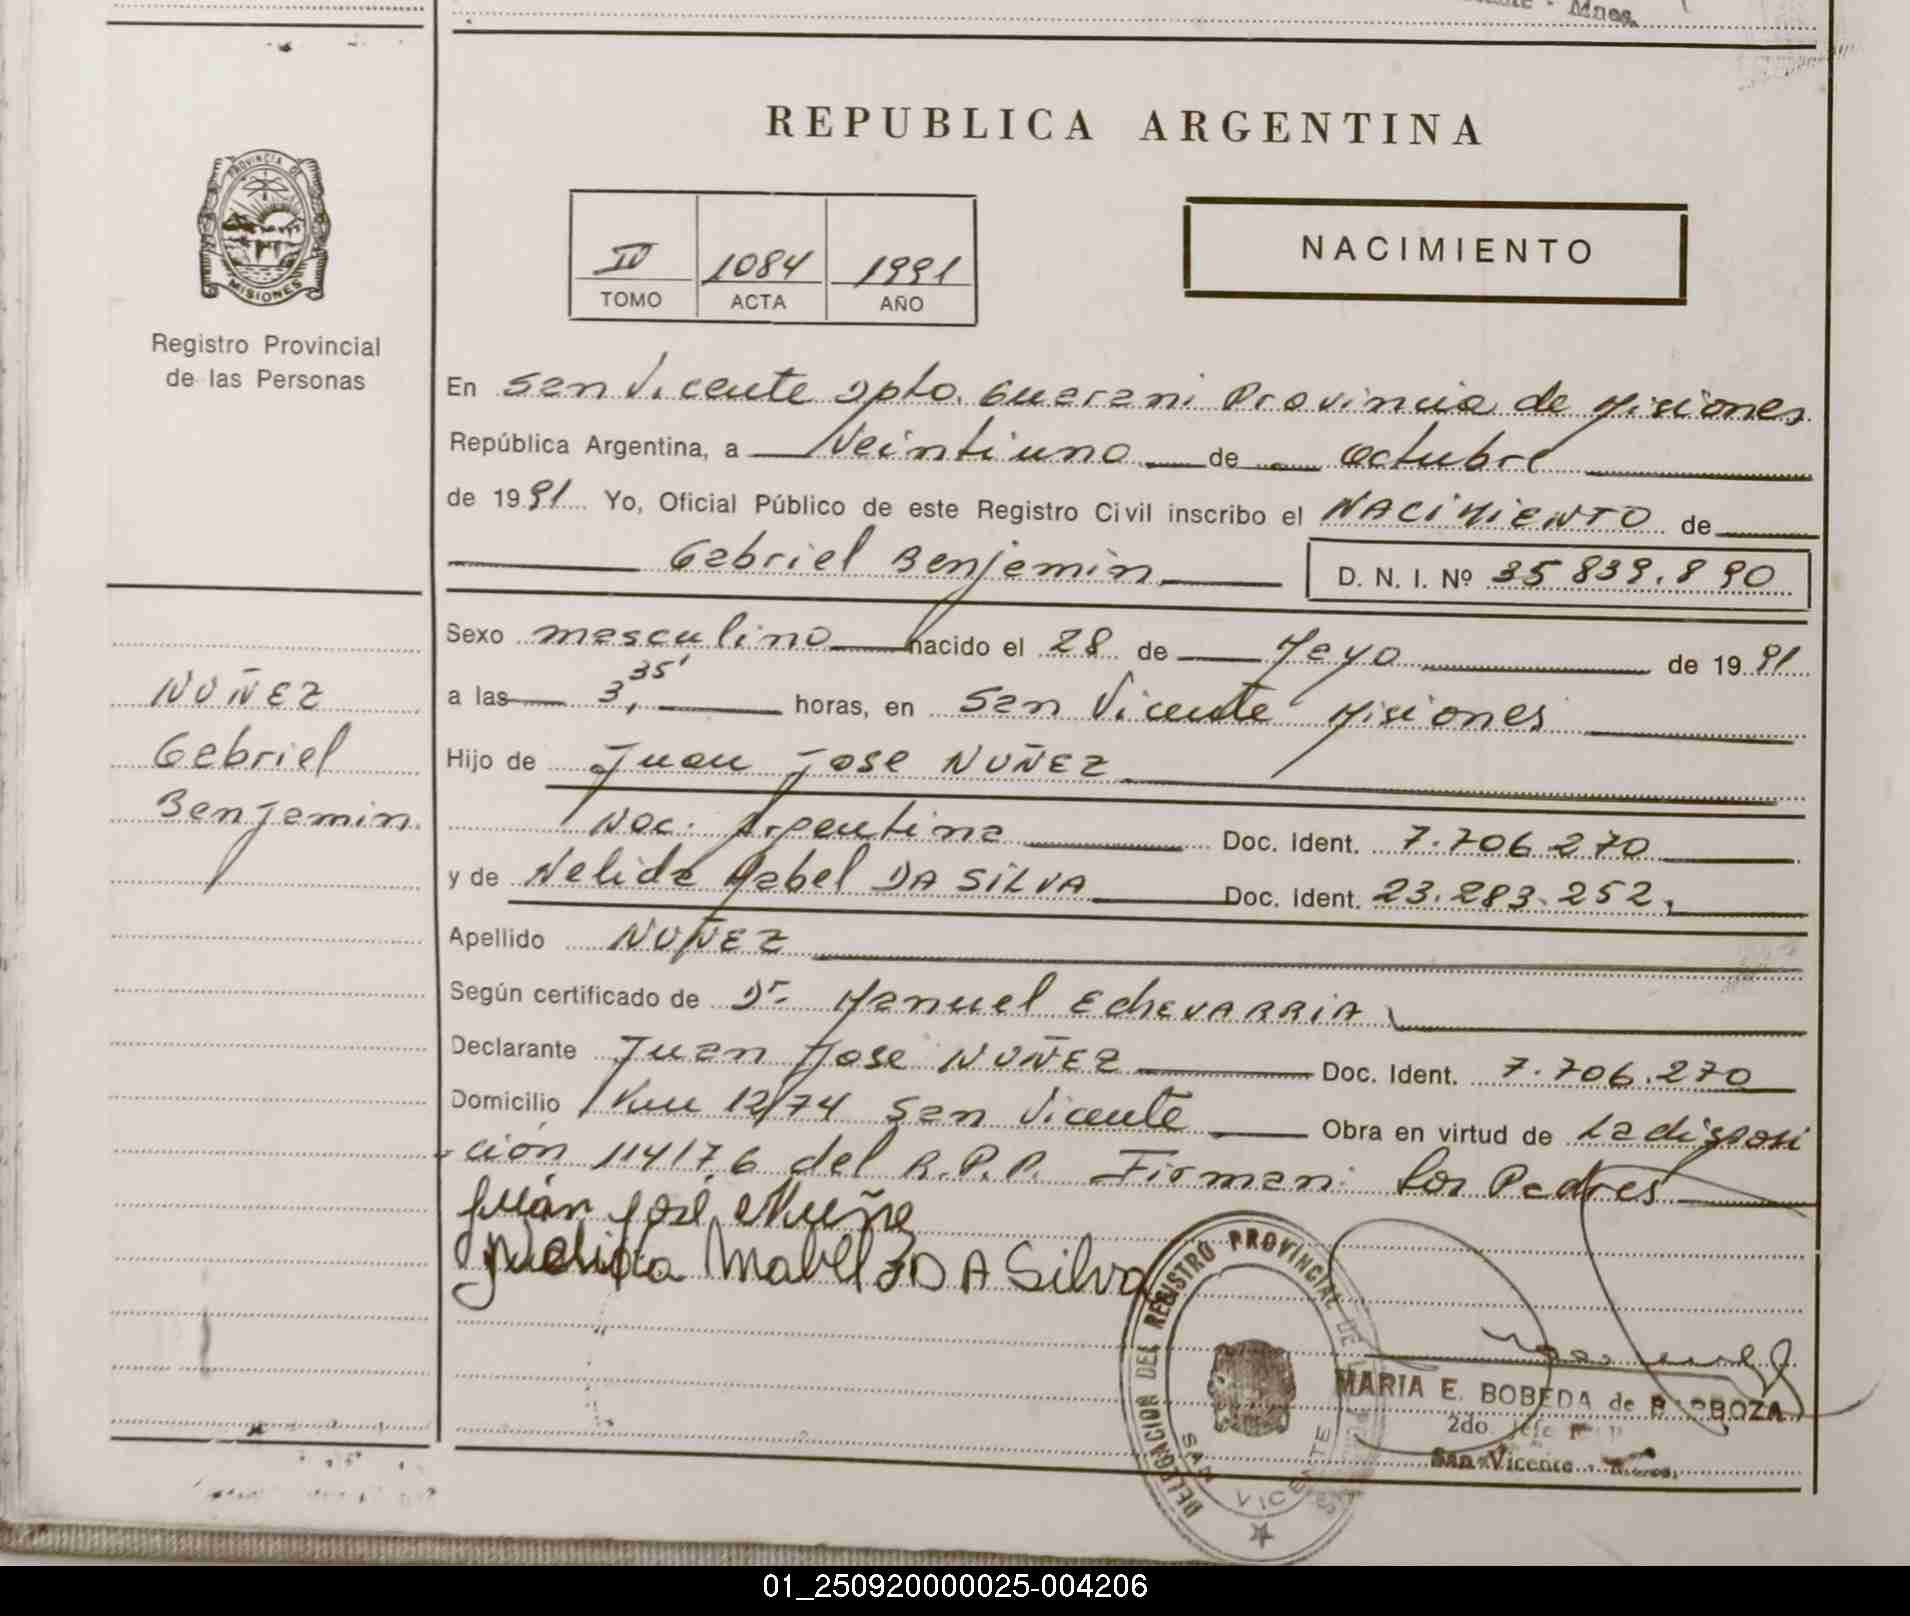 Mnes.
REPUBLICA ARGENTINA
PROVINCIA DE MISIONES
Registro Provincial
de las Personas
IV 1084 1991
TOMO ACTA AÑO
NACIMIENTO
En San Vicente Dpto. Guarani Provincia de Misiones
República Argentina, a Veintiuno de octubre
de 1991 Yo, Oficial Público de este Registro Civil inscribo el NACIMIENTO de
Gabriel Benjamin D. N. I. Nº 35 839.890
Sexo masculino nacido el 28 de Mayo de 1991
a las 3,35' horas, en San Vicente Misiones
Hijo de Juan Jose NUÑEZ
Nac. Argentina Doc. Ident. 7.706.270
y de Nelida Mabel DA SILVA Doc. Ident. 23.283.252,
Apellido NUÑEZ
Según certificado de Dr. Manuel EchEVARRIA
Declarante Juan Jose NUÑEZ Doc. Ident. 7.706.270
Domicilio Km 12/74 San Vicente Obra en virtud de La disposi
ción 114/76 del R.P.P. Firman: Los Padres
Juan José Nuñe
Nelida Mabel DA Silva
NUÑEZ
Gabriel
Benjamin
DELEGACION DEL REGISTRO PROVINCIAL DE
SAN VICENTE
MARIA E. BOBEDA de BARBOZA
2do. Jefe
San Vicente - Mnes.
01_250920000025-004206